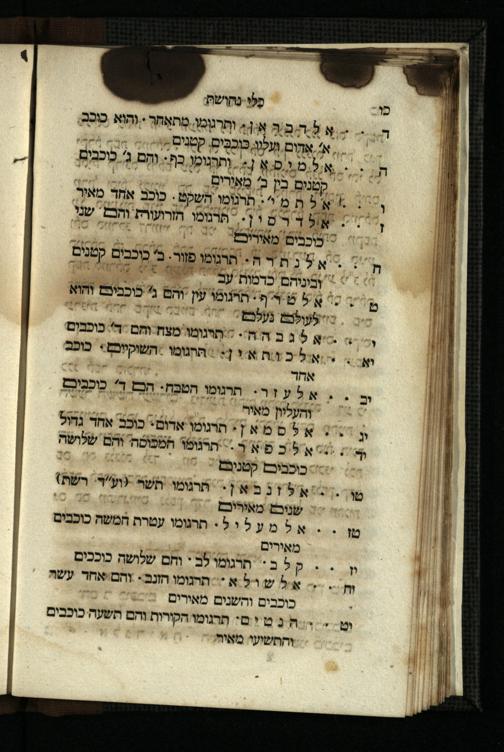 כו
כלי נחושת
ד . . אלדבראן · ותרגומו מתאחר · והוא כוכב
א׳ אדום ועליו כוכבים קטנים
ה . . אלמיסאן · ותרגומו כף · והם ג׳ כוכבים
קטנים בין ב׳ מאירים
ו . . אלתמי׳ · תרגומו השקט · כוכב אחד מאיר
ז . . אלדרסין · תרגומו הזרועות והם שני
כוכבים מאירים
ח . . אלנתרה · תרגומו פזור · ב׳ כוכבים קטנים
וביניהם כדמות עב
ט . . אלטרף · תרגומו עין והם ג׳ כוכבים והוא
לעולם נעלם
י . . אלגבהה · תרגומו מצח והם ד׳ כוכבים
יא . . אלכותאין · תרגומו השוקיים · כוכב
אחד
יב . . אלעזר · תרגומו הטבח · הם ד׳ כוכבים
והעליון מאיר
יג . . אלסמאן · תרגומו אדום · כוכב אחד גדול
יד . . אלכפאר · תרגומו המכוסה והם שלושה
כוכבים קטנים
טו . . אלזנבאן · תרגומו תשר (וע״ד רשת)
שנים מאירים
טז . . אלמעליל · תרגומו עטרת חמשה כוכבים
מאירים
יז . . קלב · תרגומו לב · והם שלושה כוכבים
יח . . אלשולא · תרגומו הזנב · והם אחד עשר
כוכבים והשנים מאירים
יט . . הנטים · תרגומו הקורות והם תשעה כוכבים
והתשיעי מאיר